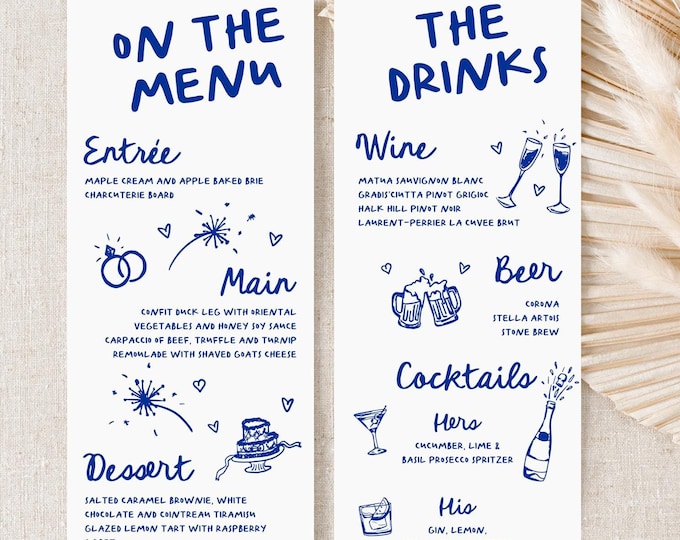 ON THE
MENU
Entrée
MAPLE CREAM AND APPLE BAKED BRIE
CHARCUTERIE BOARD
Main
CONFIT DUCK LEG WITH ORIENTAL
VEGETABLES AND HONEY SOY SAUCE
CARPACCIO OF BEEF, TRUFFLE AND TURNIP
REMOULADE WITH SHAVED GOATS CHEESE
Dessert
SALTED CARAMEL BROWNIE, WHITE
CHOCOLATE AND COINTREAU TIRAMISU
GLAZED LEMON TART WITH RASPBERRY
THE
DRINKS
Wine
MATUA SAUVIGNON BLANC
GRADIS'CIUTTA PINOT GRIGIOC
HALK HILL PINOT NOIR
LAURENT-PERRIER LA CUVEE BRUT
Beer
CORONA
STELLA ARTOIS
STONE BREW
Cocktails
Hers
CUCUMBER, LIME &
BASIL PROSECCO SPRITZER
His
GIN, LEMON,